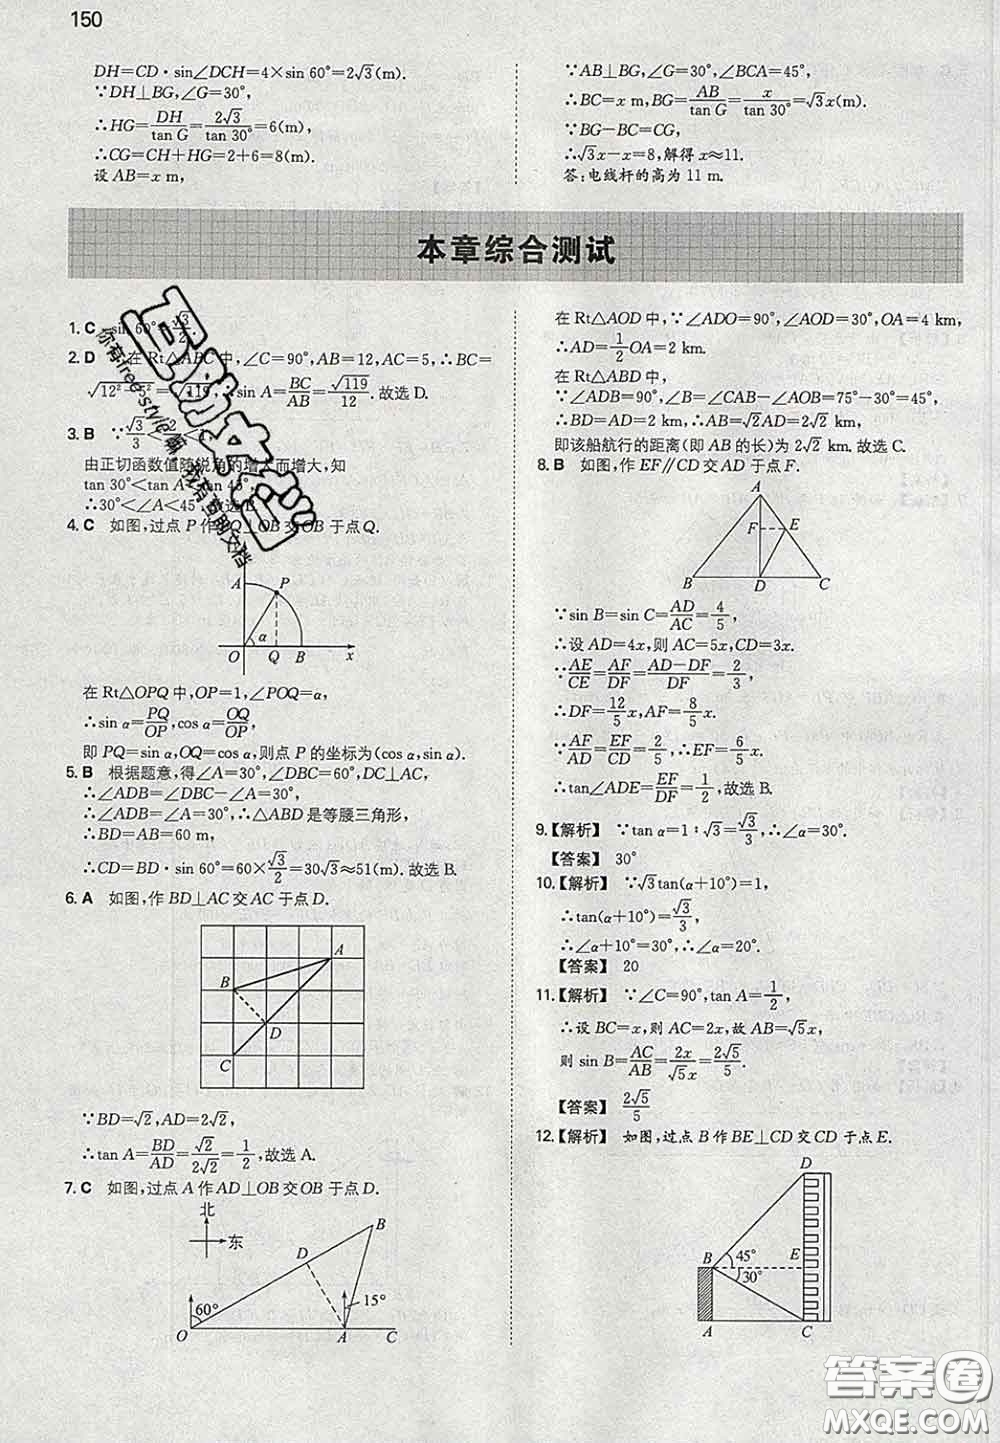 150
DH=CD·sin∠DCH=4×sin 60°=2√3(m).
∵DH⊥BG,∠G=30°,
∴HG=DH/tan G=2√3/tan 30°=6(m),
∴CG=CH+HG=2+6=8(m).
设 AB=x m,
∵AB⊥BG,∠G=30°,∠BCA=45°,
∴BC=x m,BG=AB/tan G=x/tan 30°=√3x(m).
∵BG-BC=CG,
∴√3x-x=8,解得 x≈11.
答:电线杆的高为 11 m.
本章综合测试
1. C sin 60°=√3/2.
2. D 在 Rt△ABC 中,∠C=90°,AB=12,AC=5,∴BC=
√12²-5²=√119,∴sin A=BC/AB=√119/12.故选 D.
3. B ∵√3/3<
由正切函数值随锐角的增大而增大,知
tan 30°<tan A<tan 45°,
∴30°<∠A<45°,故选 B.
4. C 如图,过点 P 作 PQ⊥OB 交 OB 于点 Q.
A P
α
O Q B x
在 Rt△OPQ 中,OP=1,∠POQ=α,
∴sin α=PQ/OP,cos α=OQ/OP,
即 PQ=sin α,OQ=cos α,则点 P 的坐标为(cos α,sin α).
5. B 根据题意,得∠A=30°,∠DBC=60°,DC⊥AC,
∴∠ADB=∠DBC-∠A=30°,
∴∠ADB=∠A=30°,∴△ABD 是等腰三角形,
∴BD=AB=60 m,
∴CD=BD·sin 60°=60×√3/2=30√3≈51(m).故选 B.
6. A 如图,作 BD⊥AC 交 AC 于点 D.
A
B
D
C
∵BD=√2,AD=2√2,
∴tan A=BD/AD=√2/2√2=1/2,故选 A.
7. C 如图,过点 A 作 AD⊥OB 交 OB 于点 D.
北
东
B
D
60° 15°
O A C
在 Rt△AOD 中,∵∠ADO=90°,∠AOD=30°,OA=4 km,
∴AD=1/2OA=2 km.
在 Rt△ABD 中,
∵∠ADB=90°,∠B=∠CAB-∠AOB=75°-30°=45°,
∴BD=AD=2 km,∴AB=√2AD=2√2 km,
即该船航行的距离(即 AB 的长)为 2√2 km.故选 C.
8. B 如图,作 EF∥CD 交 AD 于点 F.
A
F E
B D C
∵sin B=sin C=AD/AC=4/5,
∴设 AD=4x,则 AC=5x,CD=3x.
∵AE/CE=AF/DF=AD-DF/DF=2/3,
∴DF=12/5x,AF=8/5x.
∵AF/AD=EF/CD=2/5,∴EF=6/5x.
∴tan∠ADE=EF/DF=1/2,故选 B.
9.【解析】 ∵tan α=1∶√3=√3/3,∴∠α=30°.
【答案】 30°
10.【解析】 ∵√3tan(α+10°)=1,
∴tan(α+10°)=√3/3,
∴∠α+10°=30°,∴∠α=20°.
【答案】 20
11.【解析】 ∵∠C=90°,tan A=1/2,
∴设 BC=x,则 AC=2x,故 AB=√5x,
则 sin B=AC/AB=2x/√5x=2√5/5.
【答案】 2√5/5
12.【解析】 如图,过点 B 作 BE⊥CD 交 CD 于点 E.
D
B 45° E
30°
A C
答案圈
MXQE.COM